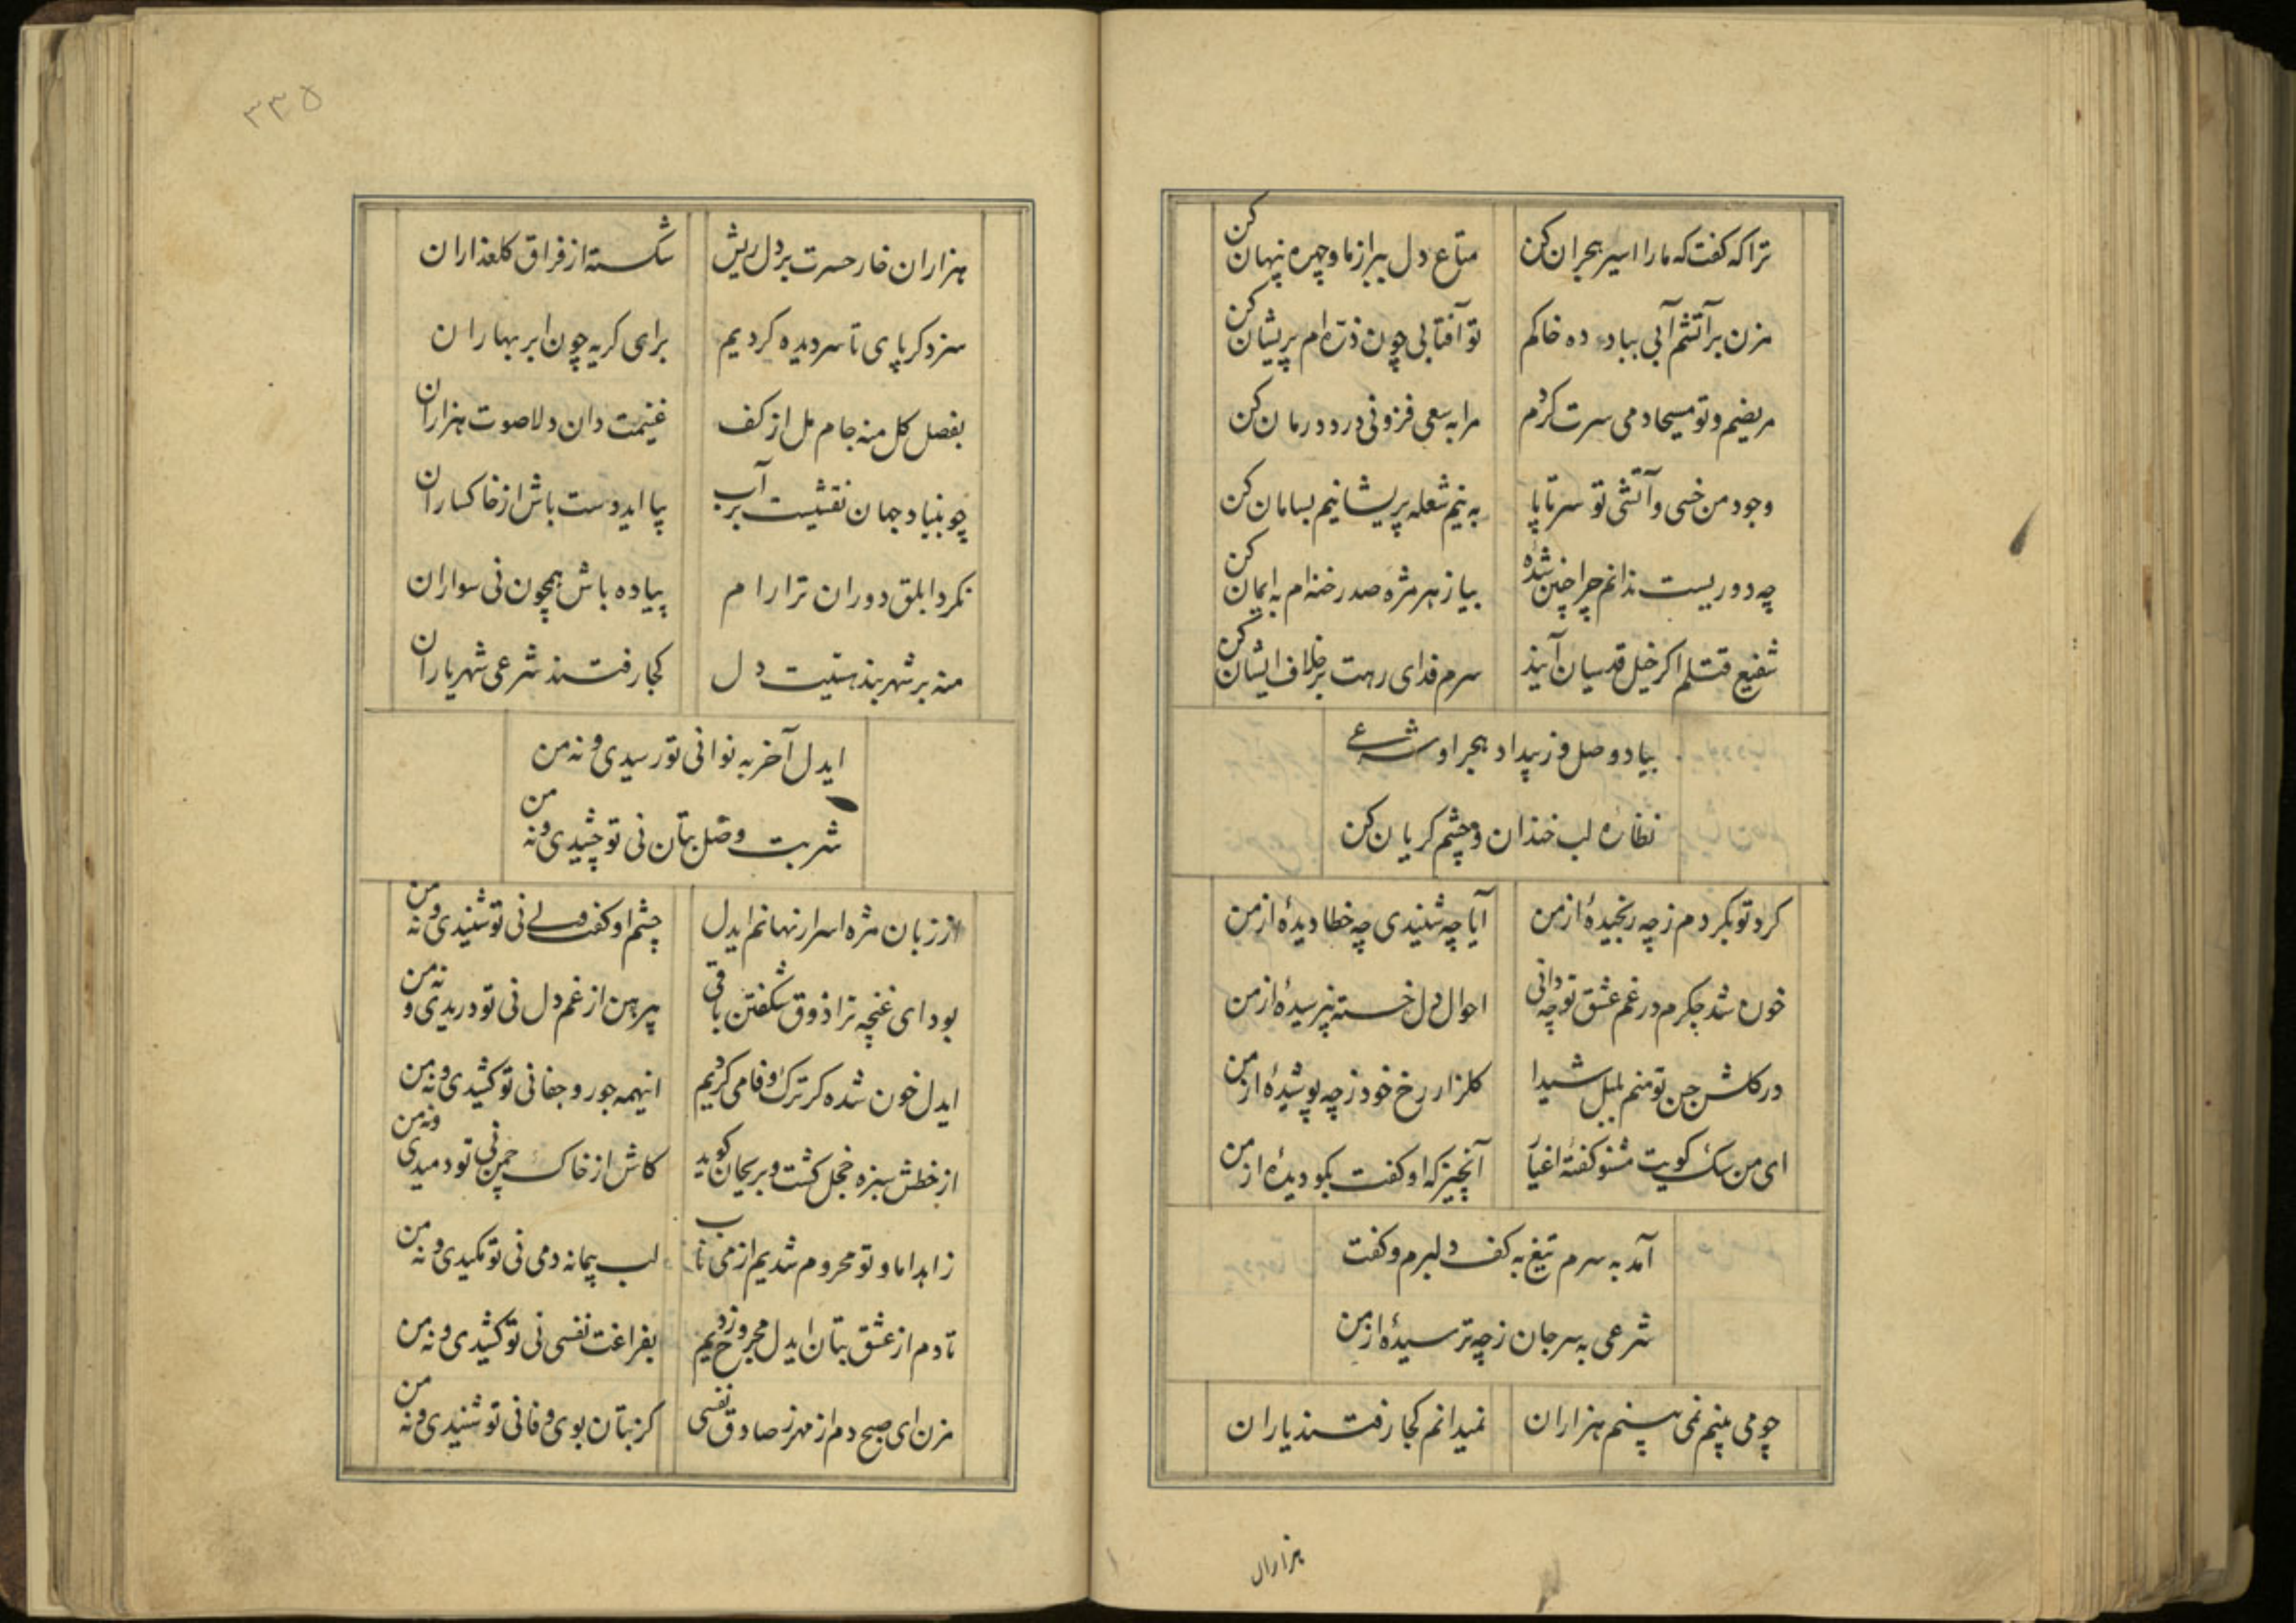 ترا که کفت که مارا اسیر هجران کن
متاع دل ببر از ما و چهره پنهان کن
مزن بر آتشم آبی بباد ده خاکم
تو آفتابی چون ذره ام پریشان کن
مریضم و تو مسیحا دمی سرت کردم
مرا به سعی فزونی درد درمان کن
وجود من خسی و آتشی تو سر تا پا
به نیم شعله پریشانیم بسامان کن
چه دوریست ندانم چرا چنین شده
بیا ز هر مژه صد رخنه ام به ایمان کن
شفیع قتلم اکر خیل قدسیان آیند
سرم فدای رهت بر خلاف ایشان کن
بیاد وصل وز بیداد هجر او شرعی
نظاره لب خندان و چشم کریان کن
کرد تو بکردم ز چه رنجیدهٔ از من
آیا چه شنیدی چه خطا دیدهٔ از من
خون شد جکرم در غم عشق تو چه دانی
احوال دل خسته نپرسیدهٔ از من
در کلشن حسن تو منم بلبل شیدا
کلزار رخ خود ز چه پوشیدهٔ از من
ای من سک کویت مشنو کفتهٔ اغیار
آنچیز که او کفت بکو دیدهٔ از من
آمد به سرم تیغ به کف دلبرم و کفت
شرعی به سر جان ز چه ترسیدهٔ از من
چو می بینم نمی بینم هزاران
نمیدانم کجا رفتند یاران
هزاران
۳۳۵
هزاران خار حسرت بر دل ریش
شکسته از فراق کلعذاران
سزد کر پای تا سر دیده کردیم
برای کریه چون ابر بهاران
بفصل کل منه جام مل از کف
غنیمت دان دلا صوت هزاران
چو بنیاد جهان نقشیست بر آب
بیا ایدوست باش از خاکساران
نکرد ابلق دوران ترا رام
پیاده باش همچون نی سواران
منه بر شهر بند هستیت دل
کجا رفتند شرعی شهریاران
ایدل آخر به نوا نی تو رسیدی و نه من
شربت وصل بتان نی تو چشیدی و نه من
از زبان مژه اسرار نهانم ایدل
چشم او کفت ولی نی تو شنیدی و نه من
بود ای غنچه ترا ذوق شکفتن باقی
پیرهن از غم دل نی تو دریدی و نه من
ایدل خون شده کر ترک وفا می کردیم
اینهمه جور و جفا نی تو کشیدی و نه من
از خطش سبزه خجل کشت و بریحان کوید
کاش از خاک چمن نی تو دمیدی و نه من
زاهدا ما و تو محروم شدیم از می ناب
لب پیمانه دمی نی تو مکیدی و نه من
تا دم از عشق بتان ایدل مجروح زدیم
بفراغت نفسی نی تو کشیدی و نه من
مزن ای صبح دم از مهر ز صادق نفسی
کز بتان بوی وفا نی تو شنیدی و نه من